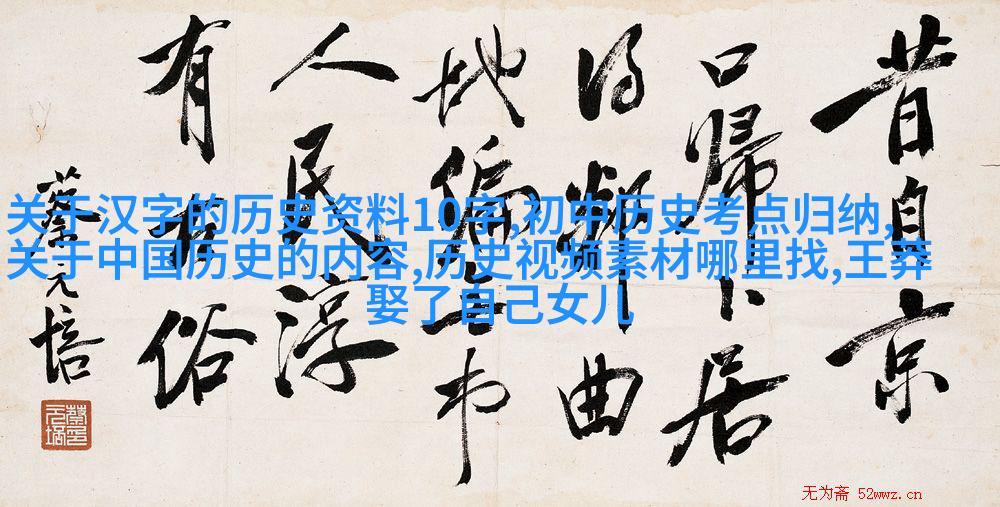 关于汉字的历史资料10字,初中历史考点归纳,
关于中国历史的内容,历史视频素材哪里找,王莽
娶了自己女儿
昔自京
口歸卜居
得鄰曲
地偏無市
人民淳
有古俗
蔡元培
无为斋 52wwz.cn